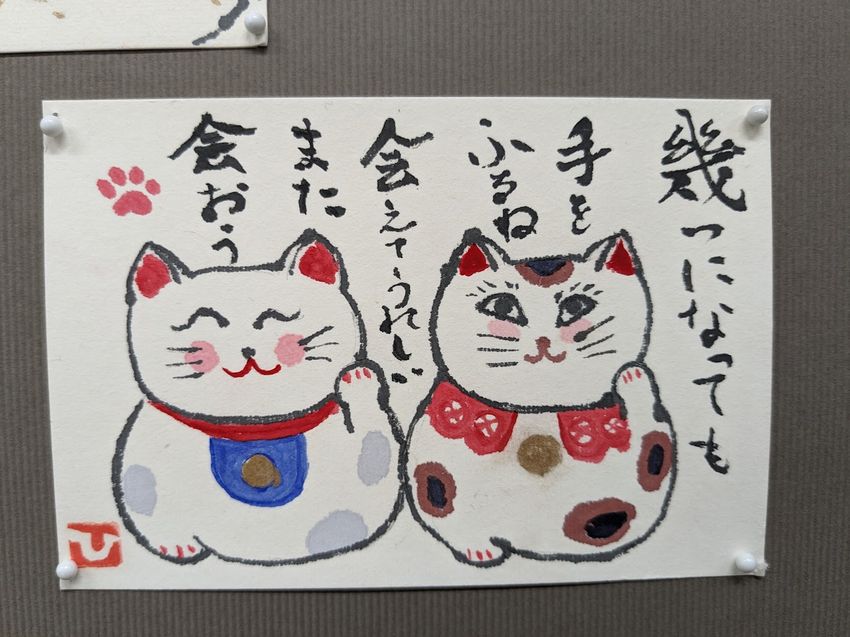 幾つになっても
手を
ふるね
会えてうれしい
また
会おう